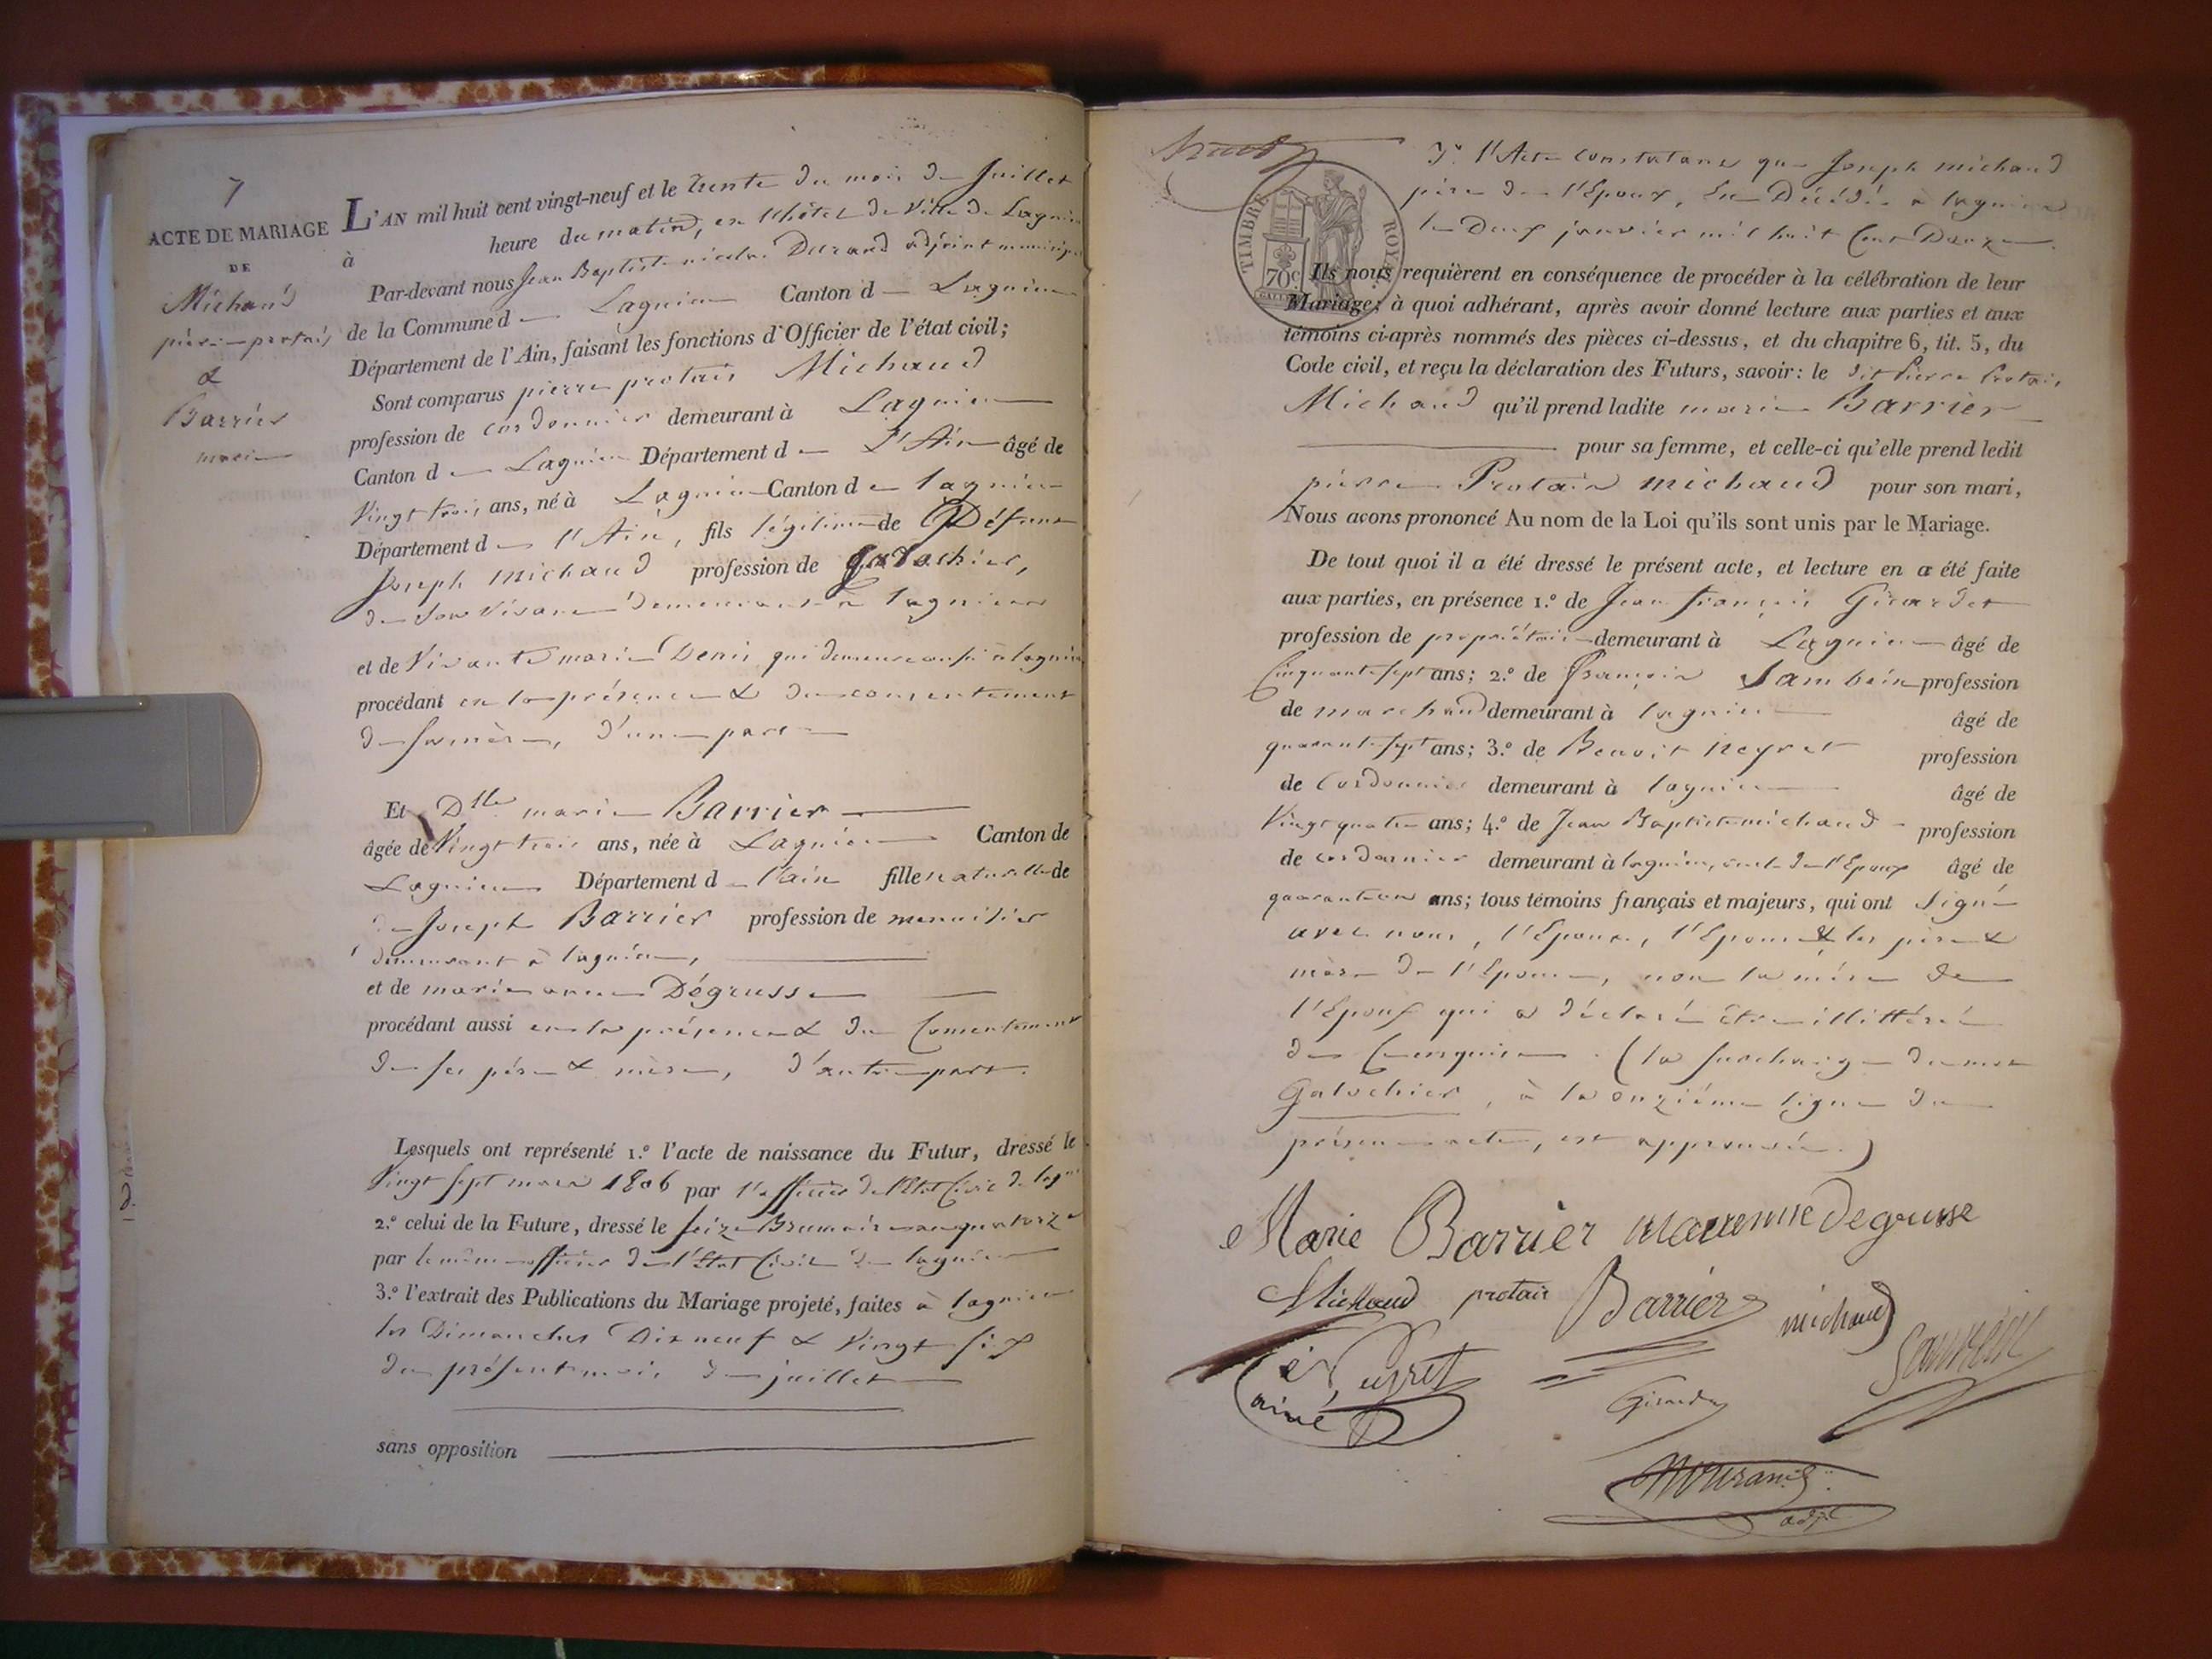 7
ACTE DE MARIAGE
DE
Michaud
pierre protais
&
Barrier
marie
L'AN mil huit cent vingt-neuf et le trente du mois de Juillet
à heure du matin, en l'hôtel de Ville de Lagnieu
Par-devant nous Jean Baptiste nicolas Durand adjoint municipal
de la Commune d Lagnieu Canton d Lagnieu
Département de l'Ain, faisant les fonctions d'Officier de l'état civil;
Sont comparus pierre protais Michaud
profession de cordonnier demeurant à Lagnieu
Canton d Lagnieu Département d L'Ain âgé de
Vingt trois ans, né à Lagnieu Canton d lagnieu
Département d l'Ain, fils légitime de Défunt
Joseph Michaud profession de Galochier,
de son Vivant demeurant à lagnieu
et de Vivante marie Denis qui demeure aussi à lagnieu
procédant en la présence & du consentement
de sa mère, d'une part
Et Dlle marie Barrier
âgée de Vingt trois ans, née à Lagnieu Canton de
Lagnieu Département d l'ain fille naturelle de
de Joseph Barrier profession de menuisier
demeurant à lagnieu,
et de marie anne Dégrusse
procédant aussi en la présence & du Consentement
de ses père & mère, d'autre part.
Lesquels ont représenté 1.° l'acte de naissance du Futur, dressé le
Vingt sept mars 1806 par l'officier de l'Etat Civil de lagnieu
2.° celui de la Future, dressé le seize Brumaire an quatorze
par le même officier de l'Etat Civil de lagnieu
3.° l'extrait des Publications du Mariage projeté, faites à lagnieu
les Dimanches Dix neuf & Vingt six
du présent mois de juillet
sans opposition
TIMBRE ROYAL
70c
l'Acte constatant que Joseph michaud
père de l'Epoux, est Décédé à lagnieu
le Deux janvier mil huit Cent Douze.
Ils nous requièrent en conséquence de procéder à la célébration de leur
Mariage; à quoi adhérant, après avoir donné lecture aux parties et aux
témoins ci-après nommés des pièces ci-dessus, et du chapitre 6, tit. 5, du
Code civil, et reçu la déclaration des Futurs, savoir: le dit Pierre Protais
Michaud qu'il prend ladite marie Barrier
pour sa femme, et celle-ci qu'elle prend ledit
pierre Protais michaud pour son mari,
Nous avons prononcé Au nom de la Loi qu'ils sont unis par le Mariage.
De tout quoi il a été dressé le présent acte, et lecture en a été faite
aux parties, en présence 1.° de Jean françois Girardet
profession de propriétaire demeurant à Lagnieu âgé de
Cinquante sept ans; 2.° de françois Sambein profession
de marchand demeurant à lagnieu âgé de
quarante sept ans; 3.° de Benoit Neyret profession
de Cordonnier demeurant à lagnieu âgé de
Vingt quatre ans; 4.° de Jean Baptiste michaud profession
de cordonnier demeurant à lagnieu, oncle de l'Epoux âgé de
quarante un ans; tous témoins français et majeurs, qui ont signé
avec nous, l'Epoux, l'Epouse & les père &
mère de l'Epouse, non la mère de
l'Epoux qui a déclaré être illittérée
de Ce enquise. (la surcharge du mot
Galochier, à la onzième ligne du
présent acte, est approuvée.)
Marie Barrier marianne Degrusse
Michaud protais Barrier michaud
Neyret
ainé
Girardet
Durand
adjt